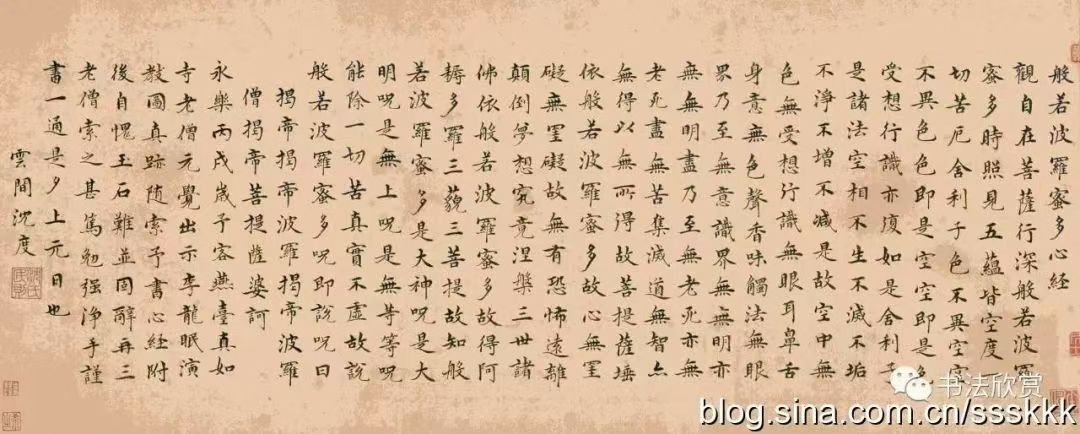 般若波羅蜜多心經
觀自在菩薩行深般若波羅
蜜多時照見五蘊皆空度一
切苦厄舍利子色不異空空
不異色色即是空空即是色
受想行識亦復如是舍利子
是諸法空相不生不滅不垢
不淨不增不減是故空中無
色無受想行識無眼耳鼻舌
身意無色聲香味觸法無眼
界乃至無意識界無無明亦
無無明盡乃至無老死亦無
老死盡無苦集滅道無智亦
無得以無所得故菩提薩埵
依般若波羅蜜多故心無罣
礙無罣礙故無有恐怖遠離
顛倒夢想究竟涅槃三世諸
佛依般若波羅蜜多故得阿
耨多羅三藐三菩提故知般
若波羅蜜多是大神呪是大
明呪是無上呪是無等等呪
能除一切苦真實不虛故說
般若波羅蜜多呪即說呪曰
揭帝揭帝波羅揭帝波羅
僧揭帝菩提薩婆訶
永樂丙戌歲予客燕臺真如
寺老僧元覺出示李龍眠演
教圖真跡随索予書心經附
後自愧玉石難並固辭再三
老僧索之甚篤勉强淨手謹
書一通是夕上元日也
雲間沈度
书法欣赏
blog.sina.com.cn/ssskkk